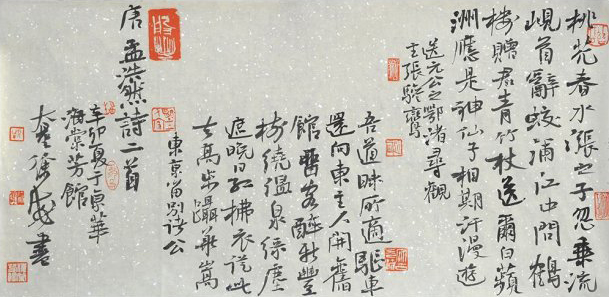 桃花春水漲之子忽乘流
峴首辭蛟浦江中問鶴
樓贈君青竹杖送爾白蘋
洲應是神仙子相期汗漫遊
送元公之鄂渚尋觀
主張驂鸞
吾道昧所適驅車
還向東主人開舊
館留客醉新豐
樹繞溫泉綠塵
遮晚日紅拂衣從此
去高步躡華嵩
東京留別諸公
唐孟浩然詩二首
辛卯夏于京華
海棠芳館
書